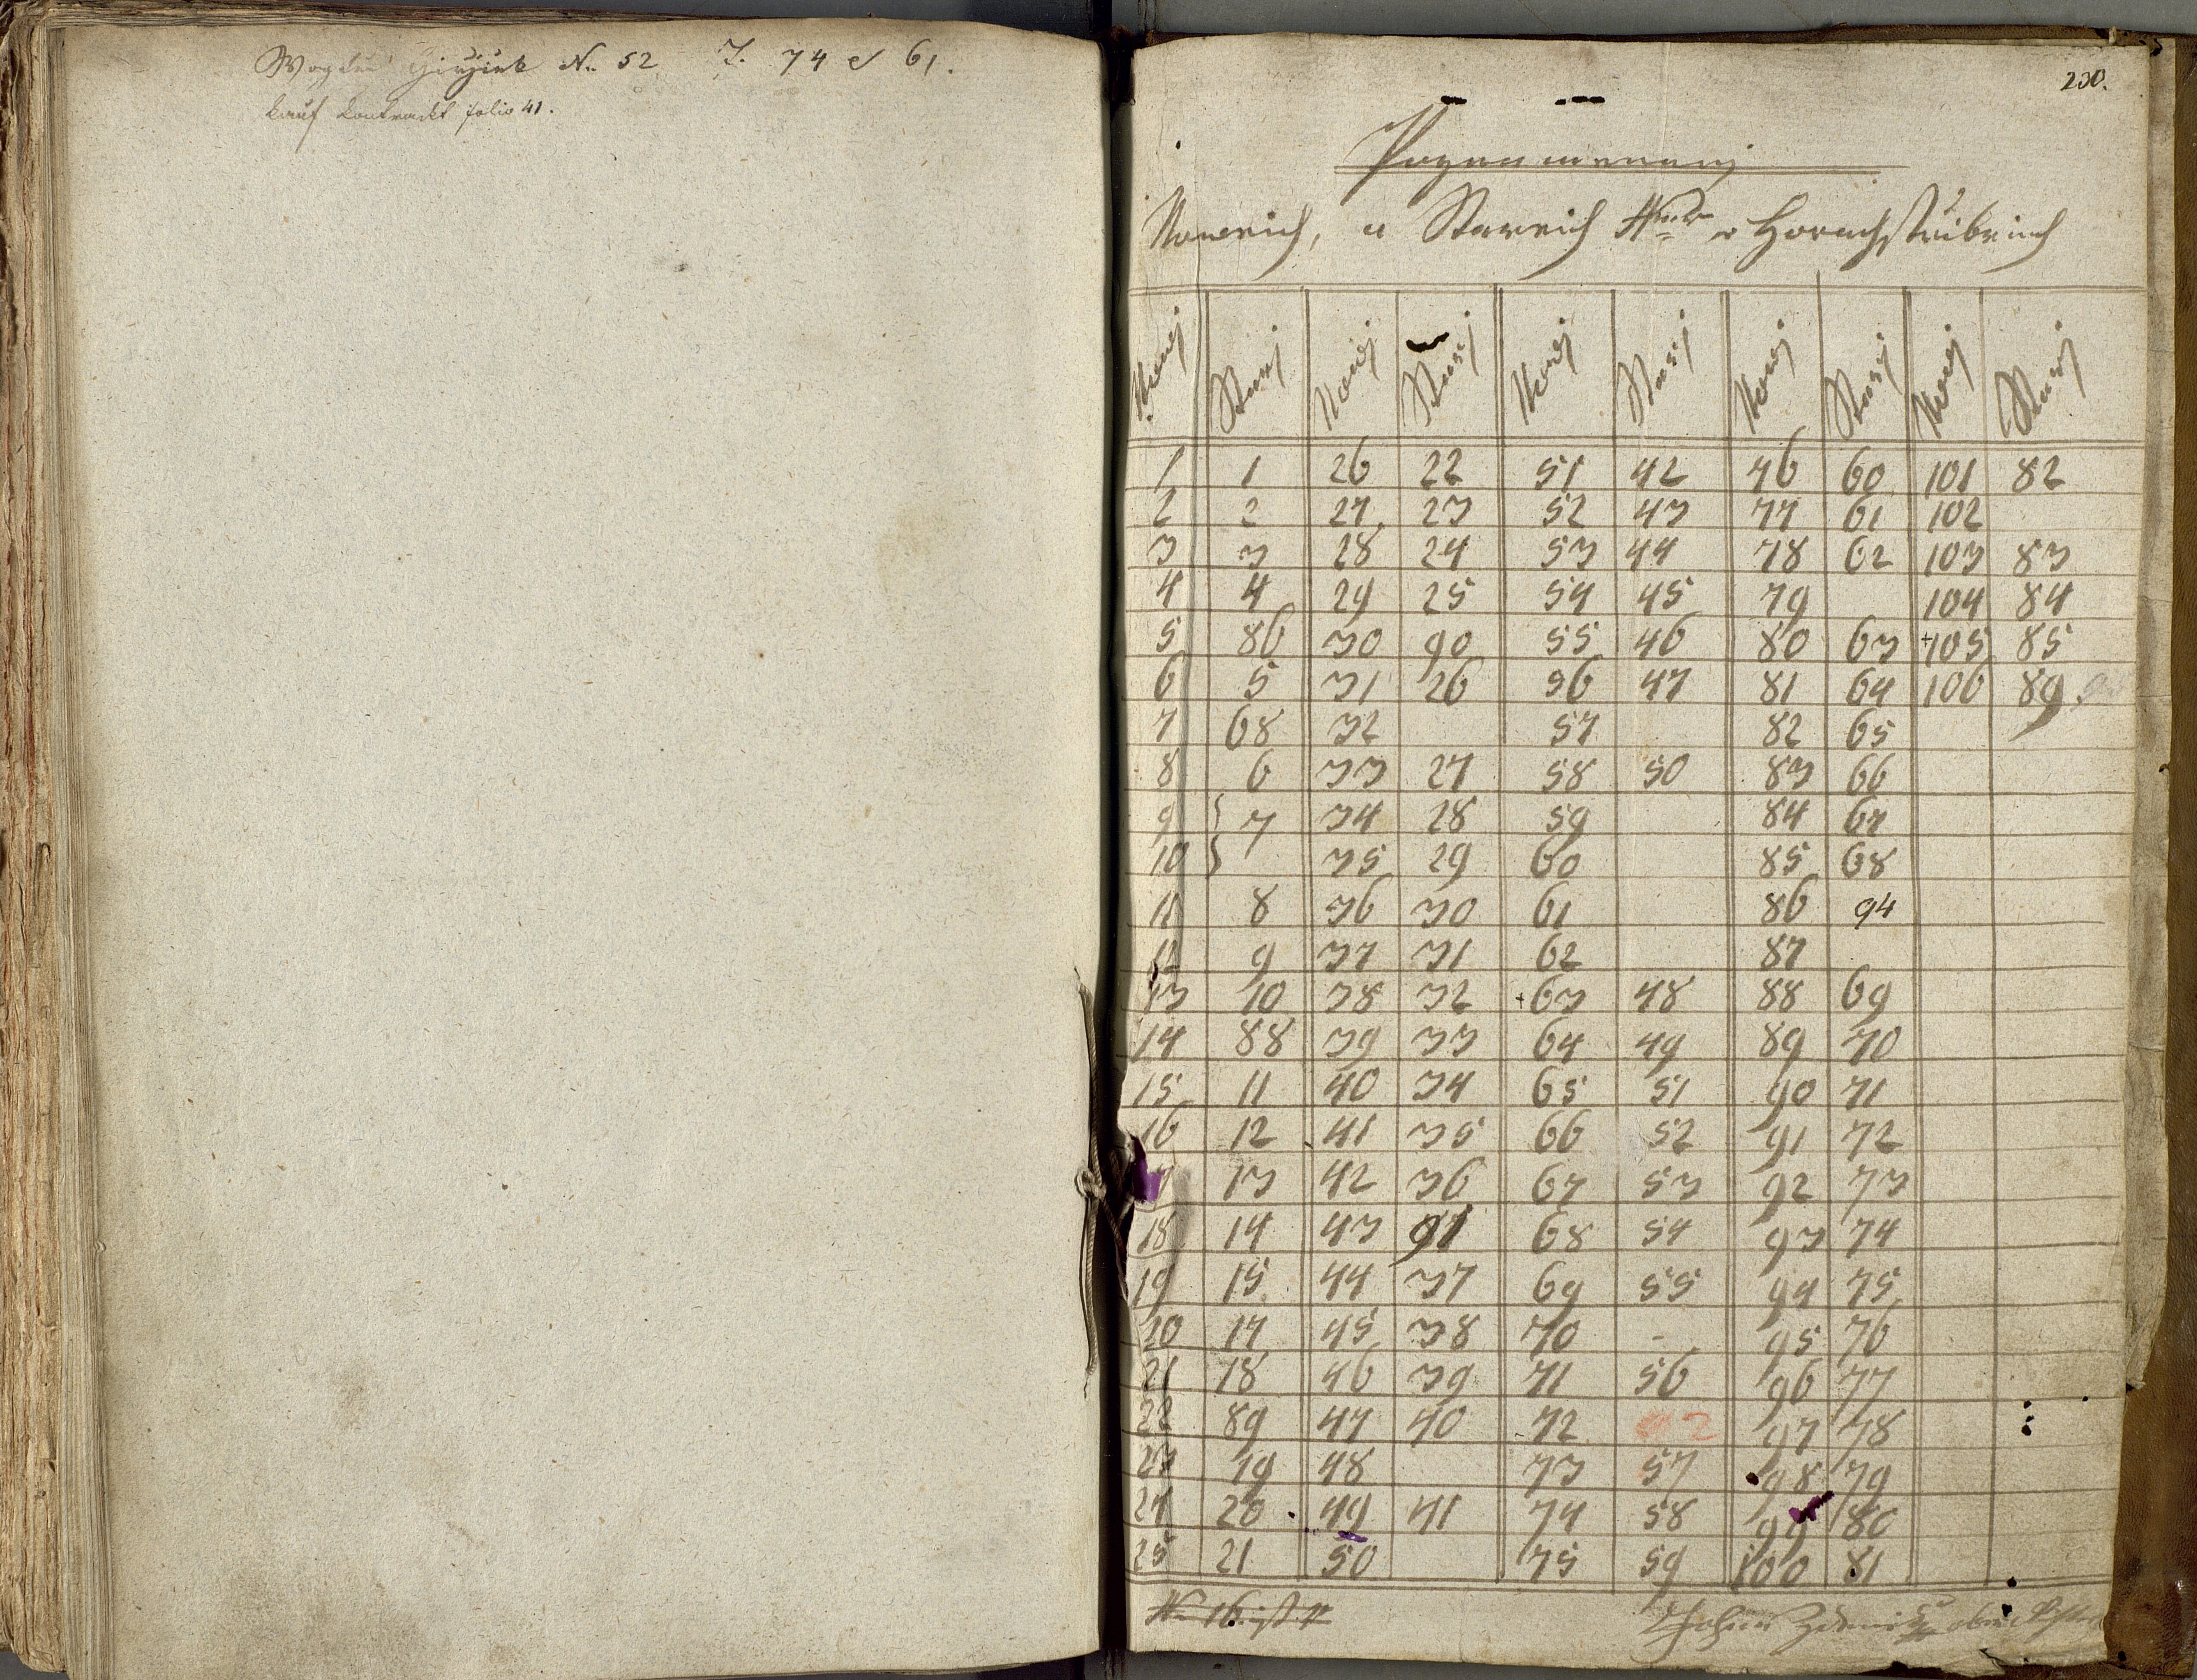 N. 52 74 61.
Kauf Kontrackt folio 41.
230.
Poznamenanj
Noweich, a Stareich
Nowej Starej Nowej Starej Nowej Starej Nowej Starej Nowej Starej
1 1 26 22 51 42 76 60 101 82
2 2 27 23 52 43 77 61 102
3 3 28 24 53 44 78 62 103 83
4 4 29 25 54 45 79 104 84
5 86 30 90 55 46 80 63 +105 85
6 5 31 26 56 47 81 64 106 89
7 68 32 57 82 65
8 6 33 27 58 50 83 66
9 } 7 34 28 59 84 67
10 } 35 29 60 85 68
11 8 36 30 61 86 94
12 9 37 31 62 87
13 10 38 32 +63 48 88 69
14 88 39 33 64 49 89 70
15 11 40 34 65 51 90 71
16 12 41 35 66 52 91 72
13 42 36 67 53 92 73
18 14 43 91 68 54 93 74
19 15 44 37 69 55 94 75
20 17 45 38 70 - 95 76
21 18 46 39 71 56 96 77
22 89 47 40 72 97 78
23 19 48 73 57 98 79
24 20 49 41 74 58 99 80
25 21 50 75 59 100 81